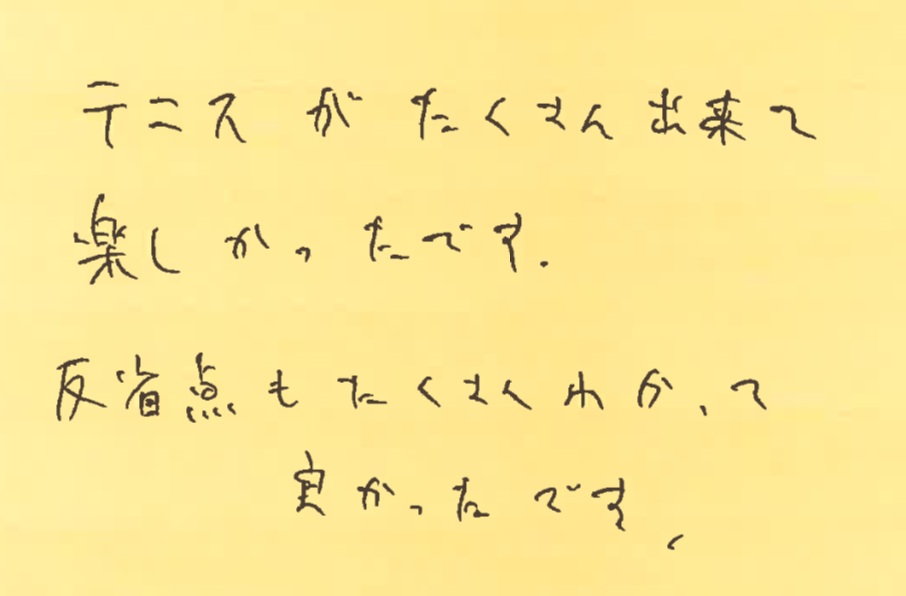 テニスがたくさん出来て
楽しかったです.
反省点もたくさんわかって
良かったです、